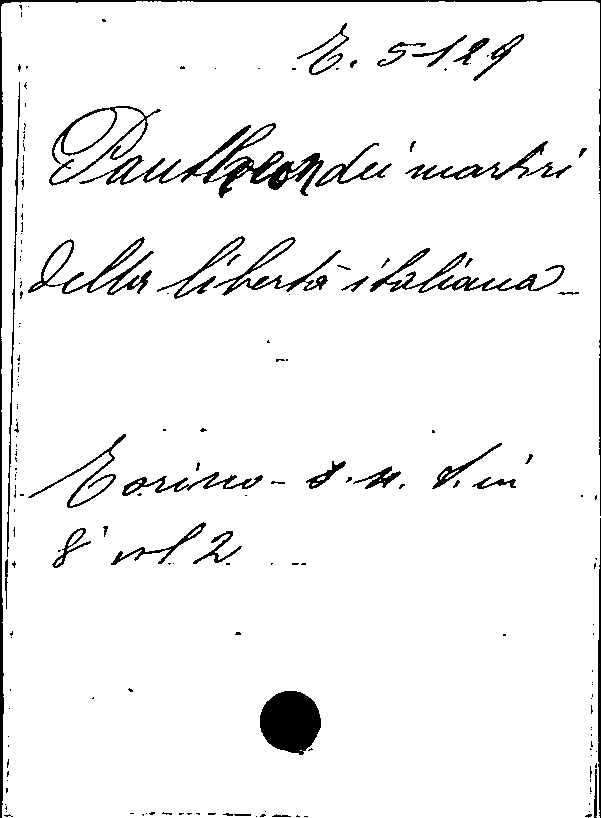 E. 5-129
Pantheon dei martiri
della libertà italiana -
Torino - s. n. t. in
8° vol 2